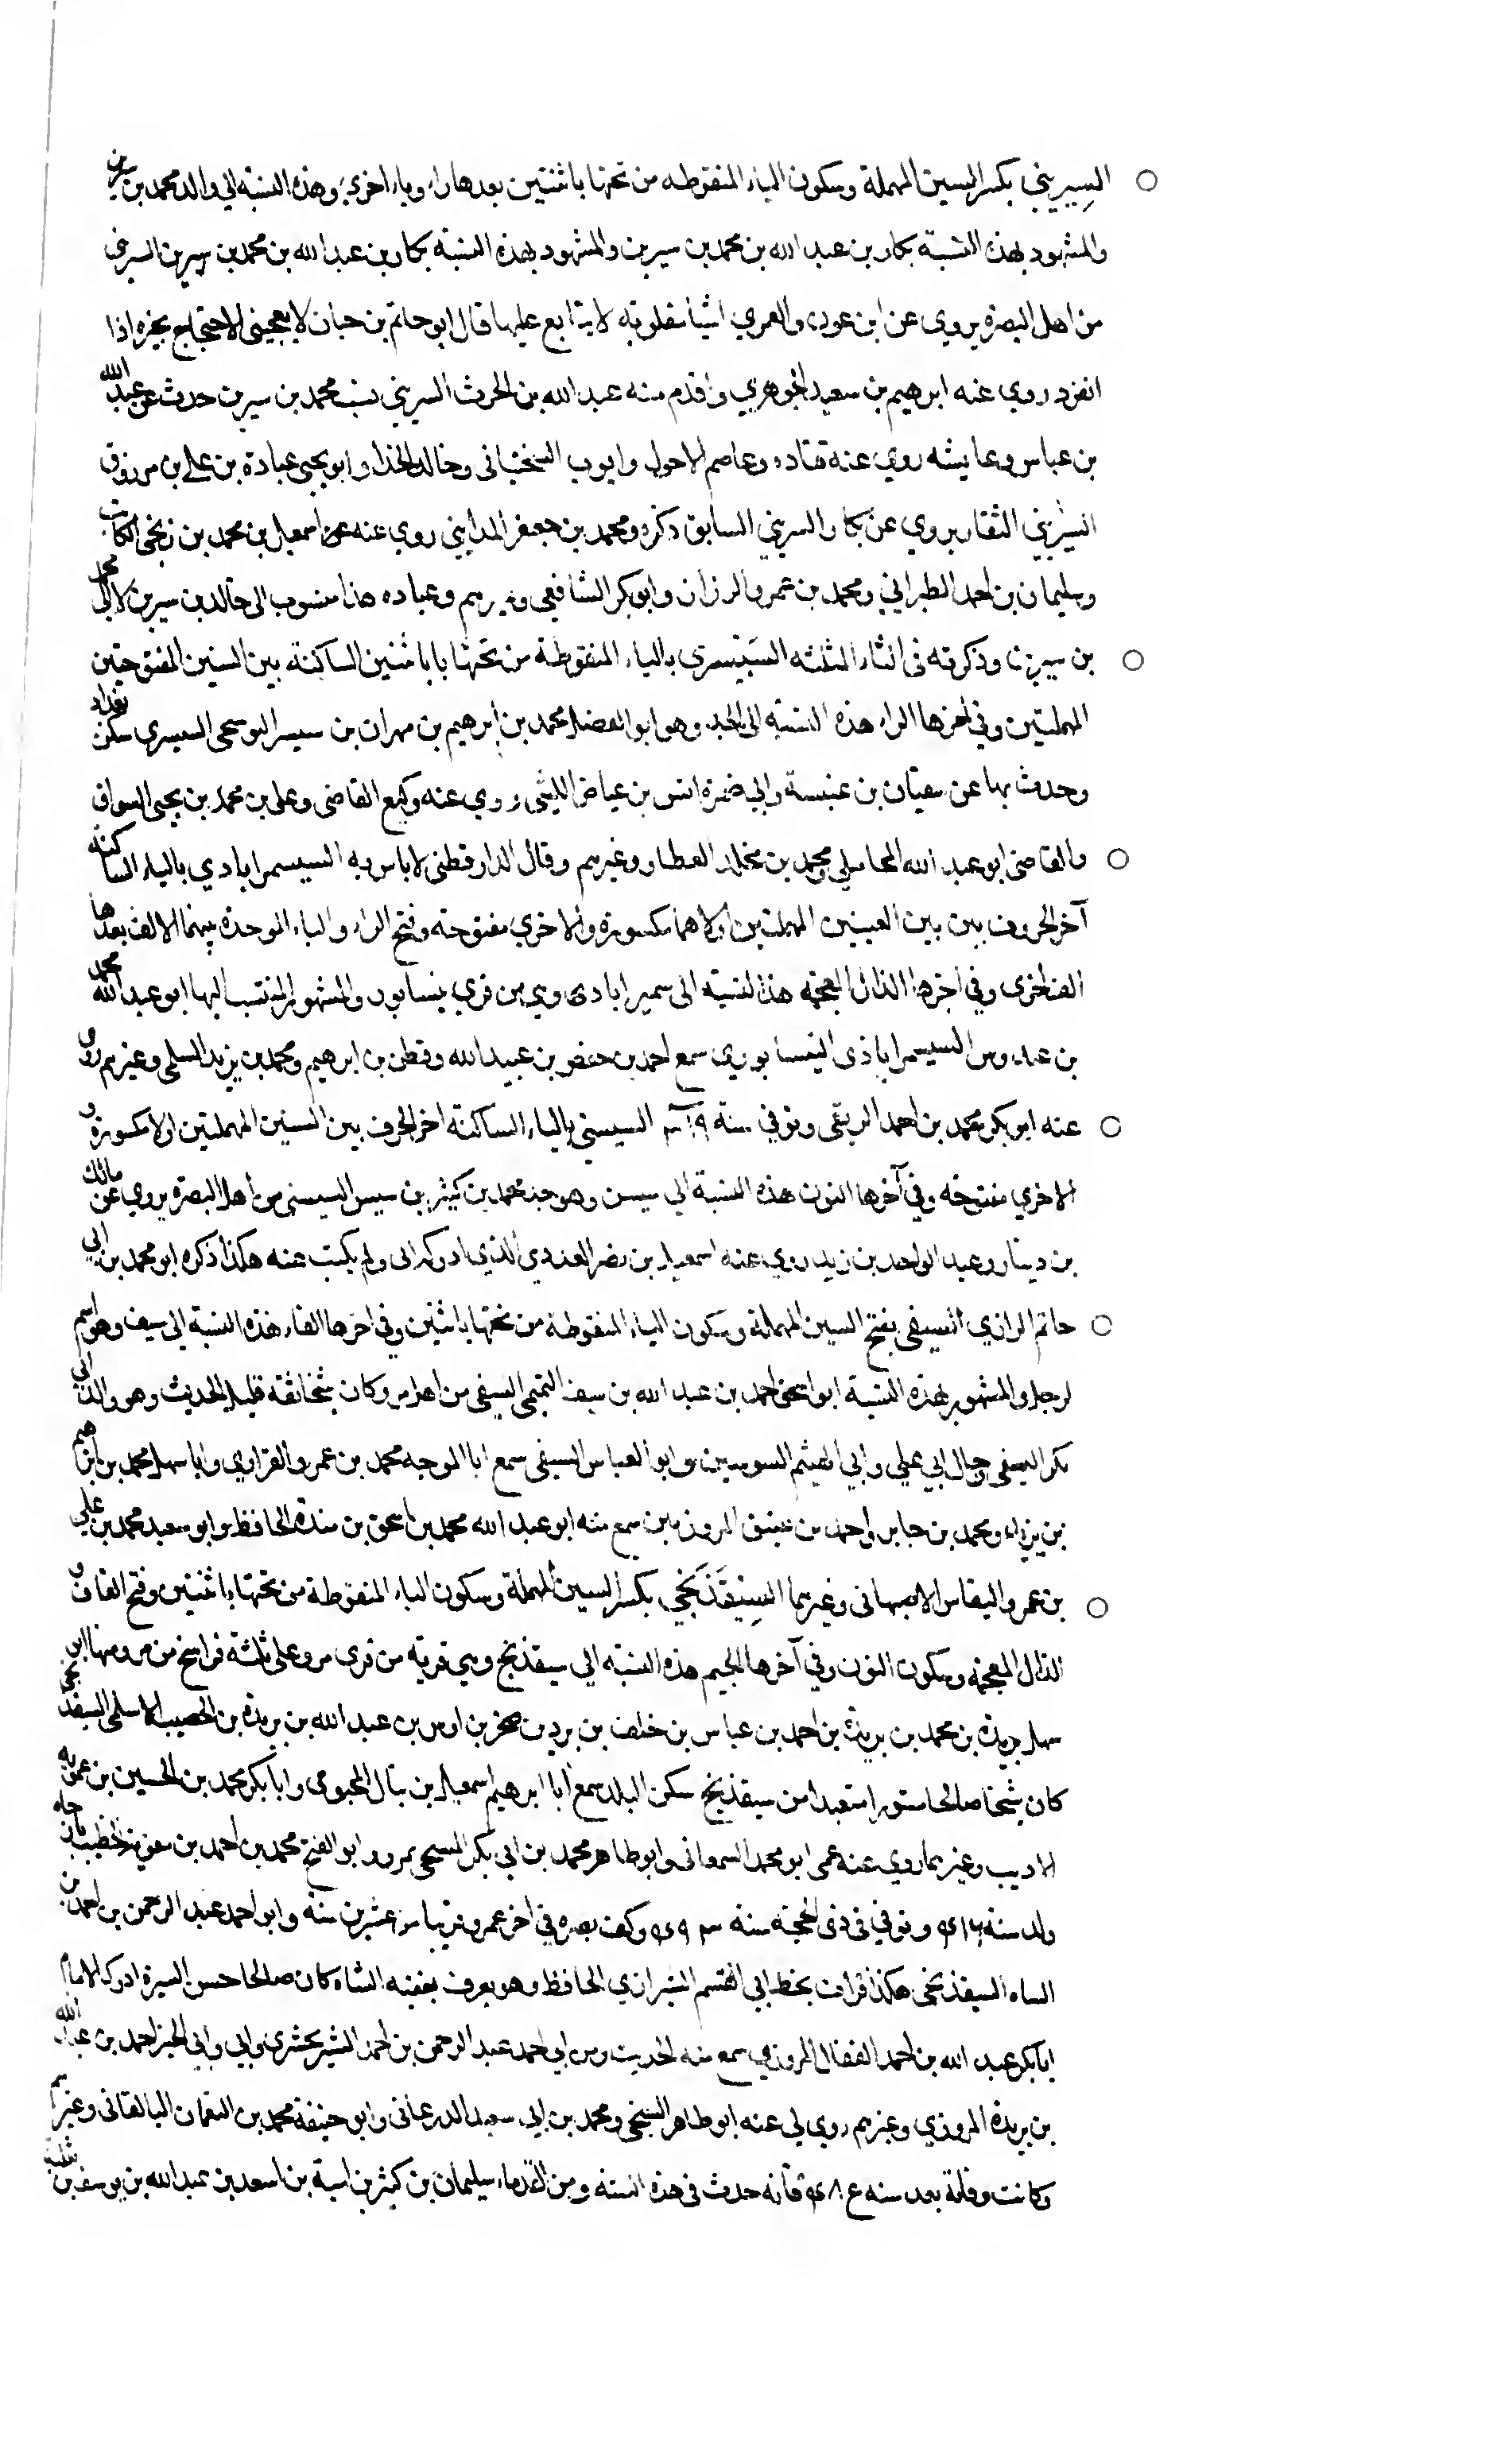 السِيريني بكسر السين المهملة وسكون الياء المنقوطه من تحتها باثنتين بعدها راء وياء اخرى وهذه النسبة الي والد محمد بن سيرين
والمشهود بهذه النسبة بكار بن عبد الله بن محمد بن سيرين والمشهود بهذه النسبة بكار بن عبد الله بن محمد بن سيرين السيرينى
من اهل البصرة يروي عن ابن عون والعمري اشيا مقلوبه لا يتابع عليها قال ابو حاتم بن حبان لا يعجبنى الاحتجاج بخبره اذا
انفرد روي عنه ابرهيم بن سعيد الجوهري واقدم منه عبد الله بن الحرث السريني نسب محمد بن سيرين حدث عن عبد الله
بن عباس وعايشه روي عنه قتاده وعاصم الاحول وايوب السختيانى وخالد الحذا وابو يحيى عبادة بن علي بن مرزوق
السيريني النقار يروي عن بكار السريني السابق ذكره ومحمد بن جعفر المدايني روي عنه اسمعيل بن محمد بن زنجى الكاتب
وسليمان بن احمد الطبراني ومحمد بن عمرو الرزان وابو بكر الشافعي وغيرهم وعباده هذا منسوب الى خالد بن سيرين لا الى محمد
بن سيرين وذكرته فى الثاء المثلثه السَيسرى بالياء المنقوطة من تحتها باثنين الساكنة بين السنين المفتوحتين
المهملتين وفي اخرها الراء هذه النسبة الى الجد وهو ابو الفضل محمد بن ابرهيم بن مهران بن سيسر البوسنجى السيسرى سكن بغداد
وحدث بها عن سفيان بن عنبسة وابي ضمرة انس بن عياض الليثى روي عنه وكيع القاضى وعلى بن محمد بن يحيى السواق
والقاضى ابو عبد الله المحاملي ومحمد بن مخلد العطار وغيرهم وقال الدارقطنى لا باس به السيسمرابادي بالياء الساكنة
آخر الحروف بين السينين المهملتين اولاهما مكسورة والاخري مفتوحة وفتح الراء والباء الموحدة بينهما الالف بعدها
الف اخرى وفي اخرها الذال المعجمه هذه النسبة الى سميراباد وهي من قري نيسابور والمشهور المنتسب اليها ابو عبد الله محمد
بن عبدوس السيسمراباذى النيسابوري سمع احمد بن حفص بن عبيد الله وقطن بن ابرهيم ومحمد بن يزيد السلمى وغيرهم روى
عنه ابو بكر محمد بن احمد الريقى وتوفي سنة ٣١٩ السيسنى بالياء الساكنة اخر الحرف بين السنين المهملتين اولا مكسورة و
الاخري مفتحه وفي آخرها النون هذه النسبة الى سيسن وهو جد محمد بن كثير بن سيسن السيسنى من اهل البصرة يروي عن مالك
بن دينار وعبد الواحد بن زيد روي عنه اسمعيل بن نصر العبدي الذي ادركه ابى ولم يكتب عنه هكذا ذكره ابو محمد بن ابي
حاتم الرازي السيفى بفتح السين المهملة وسكون الياء المنقوطة من تحتها باثنتين وفي اخرها الفاء هذه النسبة الى سيف وهو اسم
لرجل والمشهور بهذه النسبة ابو اسحق احمد بن عبد الله بن سيف التميمى السيفى من اهل مرو كان شيخا ثقة قليل الحديث وهو والد ابي
بكر السيفى وخال ابي علي وابي الهيثم السوسين وابو العباس السيفى سمع ابا الموجه محمد بن عمرو الفزاري وابا سهل محمد بن ابرهيم
بن يزداد ومحمد بن جابر واحمد بن عتيق المروزيين سمع منه ابو عبد الله محمد بن اسحق بن مندة الحافظ وابو سعيد محمد بن علي
بن عمرو النقاس الاصبهانى وغيرهما السِيقَذَنجي بكسر السين المهملة وسكون الياء المنقوطة من تحتها باثنتين وفتح القاف و
الذال المعجمة وسكون النون وفي آخرها الجيم هذه النسبة الي سيقذنج وهي قرية من قرى مرو على ثلثة فراسخ من مرو منها ابو
سهل بريدة بن محمد بن بريدة بن احمد بن عباس بن خلف بن برد بن صخر بن اوس بن عبد الله بن بريدة بن الحصيب الاسلمى السيقذنجى
كان شيخا صالحا مستورا متعبدا من سيقذنج سكن البلد سمع ابا ابرهيم اسمعيل بن ينال المحبوبى وابا بكر محمد بن الحسين بن عمويه
الاديب وغيرهما روي عنه عمى ابو محمد السمعانى وابو طاهر محمد بن ابي بكر السنجى بمرو وابو الفتح محمد بن احمد بن معن الخطيب
ولد سنة ٤١٦ وتوفي فى ذى الحجة سنة ٤٩٣ وكف بصره في اخر عمره قريبا من عشرين سنة وابو احمد عبد الرحمن بن احمد بن
الساه السيقذنجى هكذا قرات بخط ابي القسم الشيرازي الحافظ وهو يعرف بفقيه الشاه كان صالحا حسن السيرة ادرك الامام
ابا بكر عبد الله بن احمد القفال المروزي سمع منه الحديث ومن ابي احمد عبد الرحمن بن احمد الشيرنخشرى وابي الخير احمد بن عبد الله
بن بريدة المروزي وغيرهم روي لي عنه ابو طاهر السنجى ومحمد بن ابي سعيد الدرغانى وابو حنيفة محمد بن النعمان البالقانى وغيرهم
وكانت وفاته بعد سنه ٤٨٤ فانه حدث فى هذه السنة ومن القدماء سليمان بن كثير بن امية بن اسعد بن عبد الله بن يوسف بن